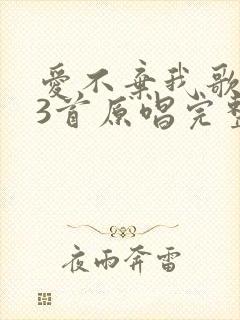 愛不棄我歌
3首原唱完整
夜雨奔雷